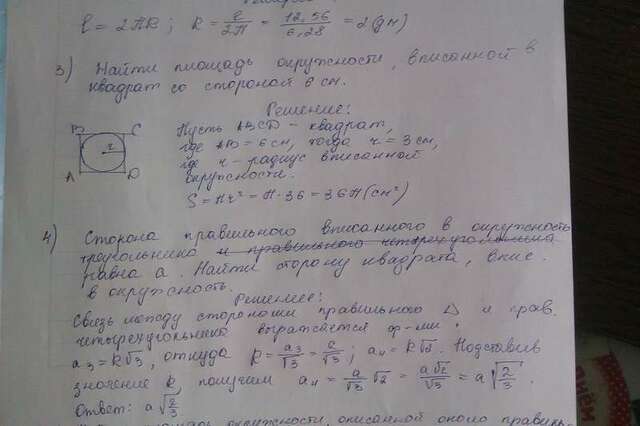 l = 2ПR; R = l/2П = 12,56/6,28 = 2 (дм)
3) Найти площадь окружности, вписанной в
квадрат со стороной 6 см.
Решение:
B C
A D
r
Пусть ABCD - квадрат,
где AB = 6 см, тогда r = 3 см,
где r - радиус вписанной
окружности.
S = Пr² = П·36 = 36П (см²)
4) Сторона правильного вписанного в окружность
треугольника и правильного четырехугольника
равна a. Найти сторону квадрата, впис.
в окружность.
Решение:
Связь между сторонами правильного Δ и прав.
четырехугольника выражается ф-ми:
a₃ = R√3, откуда R = a₃/√3 = a/√3; a₄ = R√2. Подставив
значение R, получим a₄ = a/√3 √2 = a√2/√3 = a√(2/3).
Ответ: a√(2/3)
площадь окружности, описанной около правиль-